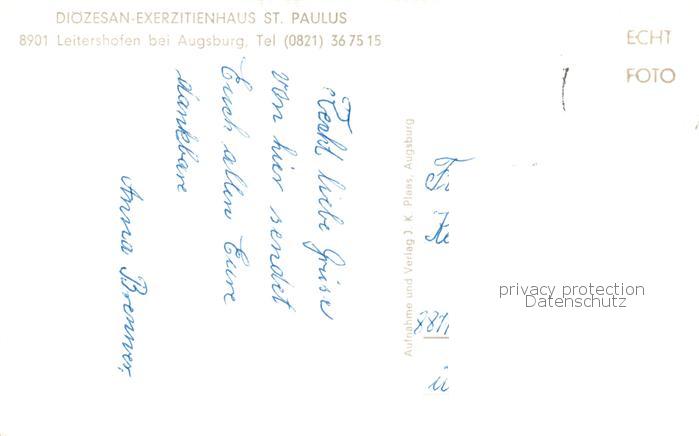 DIÖZESAN-EXERZITIENHAUS ST. PAULUS
8901 Leitershofen bei Augsburg, Tel (0821) 36 75 15
ECHT
FOTO
Recht liebe Grüße
von hier sendet
Euch allen Eure
dankbare
Anna Brenner.
Aufnahme und Verlag J. K. Plaas, Augsburg
privacy protection
Datenschutz